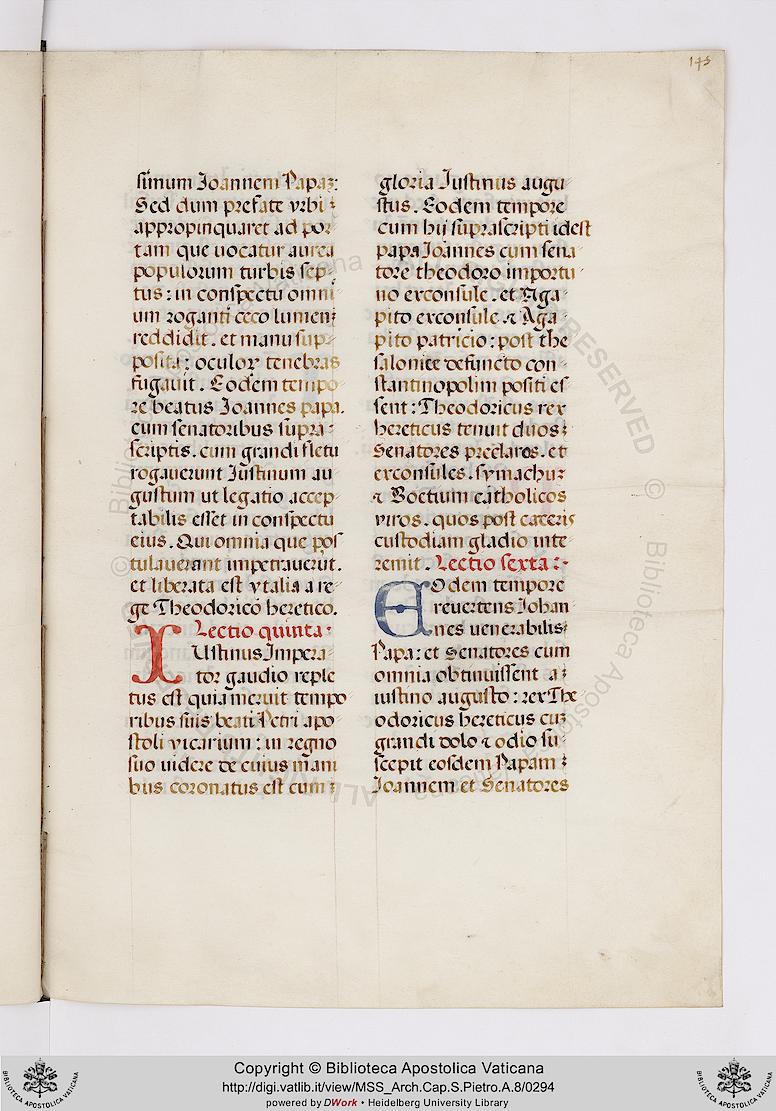 145
simum Joannem Papaz:
Sed dum prefate vrbi:
appropinquaret ad por
tam que uocatur aurea
populorum turbis sep
tus: in conspectu omni
um roganti ceco lumen:
reddidit. et manu sup
posita: oculoꝝ tenebras
fugauit. Eodem tempo
re beatus Joannes papa.
cum senatoribus supra:
scriptis. cum grandi fletu
rogauerunt Justinum au
gustum ut legatio accep
tabilis esset in conspectu
eius. Qui omnia que pos
tulauerant impetrauerūt.
et liberata est ytalia a re
ge Theodorico heretico.
Lectio quinta.
IUstinus Impera
tor gaudio reple
tus est quia meruit tempo
ribus suis beati Petri apo
stoli vicarium: in regno
suo uidere de cuius mani
bus coronatus est cum:
gloria Justinus augu
stus. Eodem tempore
cum hij suprascripti idest
papa Joannes cum sena
tore theodoro importu
no exconsule. et Aga
pito exconsule ⁊ Aga
pito patricio: post the
salonice defuncto con
stantinopolim positi es
sent: Theodoricus rex
hereticus tenuit duos:
Senatores preclaros. et
exconsules. symachuz
⁊ Boetium catholicos
viros. quos post caceris
custodiam gladio inte
remit. Lectio sexta:
EOdem tempore
reuertens Johan
nes uenerabilis:
Papa: et Senatores cum
omnia obtinuissent a:
iustino augusto: rex The
odoricus hereticus cuz
grandi dolo ⁊ odio su
scepit eosdem Papam:
Joannem et Senatores
Copyright © Biblioteca Apostolica Vaticana
http://digi.vatlib.it/view/MSS_Arch.Cap.S.Pietro.A.8/0294
powered by DWork • Heidelberg University Library